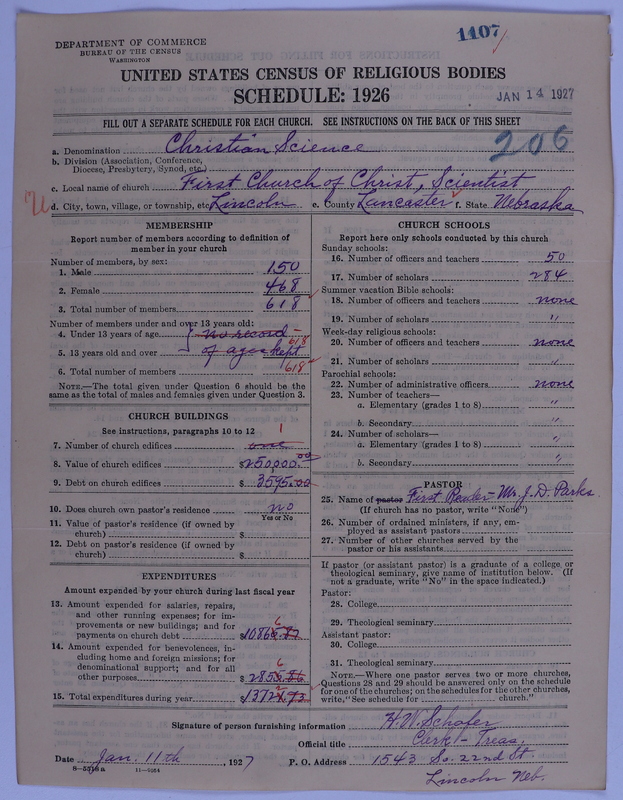 1107
DEPARTMENT OF COMMERCE
BUREAU OF THE CENSUS
WASHINGTON
UNITED STATES CENSUS OF RELIGIOUS BODIES
SCHEDULE: 1926
JAN 14 1927
FILL OUT A SEPARATE SCHEDULE FOR EACH CHURCH. SEE INSTRUCTIONS ON THE BACK OF THIS SHEET
206
a. Denomination Christian Science
b. Division (Association, Conference,
Diocese, Presbytery, Synod, etc.)
c. Local name of church First Church of Christ, Scientist
d. City, town, village, or township, etc. Lincoln e. County Lancaster f. State Nebraska
MEMBERSHIP
Report number of members according to definition of
member in your church
Number of members, by sex:
1. Male 150
2. Female 468
3. Total number of members 618
Number of members under and over 13 years old:
4. Under 13 years of age no record –
5. 13 years old and over of ages kept 618
6. Total number of members 618
NOTE.—The total given under Question 6 should be
the same as the total of males and females given under Question 3.
CHURCH BUILDINGS
See instructions, paragraphs 10 to 12
7. Number of church edifices one 1
8. Value of church edifices $250,000.00
9. Debt on church edifices $3595.00
10. Does church own pastor's residence? no
Yes or No
11. Value of pastor's residence (if owned by
church) $
12. Debt on pastor's residence (if owned by
church) $
EXPENDITURES
Amount expended by your church during last fiscal year
13. Amount expended for salaries, repairs,
and other running expenses; for im-
provements or new buildings; and for
payments on church debt $10865.87 6
14. Amount expended for benevolences, in-
cluding home and foreign missions; for
denominational support; and for all
other purposes $2855.86 6
15. Total expenditures during year $13721.73
CHURCH SCHOOLS
Report here only schools conducted by this church
Sunday schools:
16. Number of officers and teachers 50
17. Number of scholars 284
Summer vacation Bible schools:
18. Number of officers and teachers none
19. Number of scholars "
Week-day religious schools:
20. Number of officers and teachers none
21. Number of scholars "
Parochial schools:
22. Number of administrative officers none
23. Number of teachers—
a. Elementary (grades 1 to 8) "
b. Secondary "
24. Number of scholars—
a. Elementary (grades 1 to 8) "
b. Secondary "
PASTOR
25. Name of pastor First Reader – Mr. J. D. Parks.
(If church has no pastor, write "None")
26. Number of ordained ministers, if any, em-
ployed as assistant pastors
27. Number of other churches served by the
pastor or his assistants
If pastor (or assistant pastor) is a graduate of a college or
theological seminary, give name of institution below. (If
not a graduate, write "No" in the space indicated.)
Pastor:
28. College
29. Theological seminary
Assistant pastor:
30. College
31. Theological seminary
NOTE.—Where one pastor serves two or more churches,
Questions 28 and 29 should be answered only on the schedule
for one of the churches; on the schedules for the other churches,
write, "See schedule for church."
Signature of person furnishing information H. W. Schafer
Official title Clerk – Treas.
Date Jan. 11th, 1927 P. O. Address 1543 So. 22nd St.
8—5318a 11—9064 Lincoln Neb.